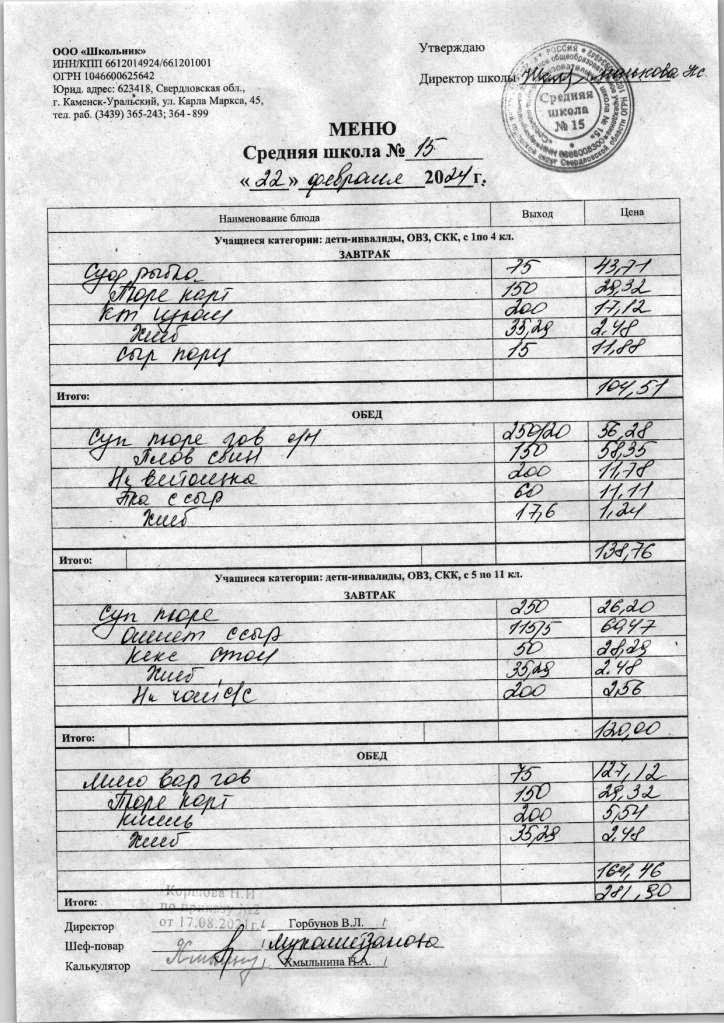 ООО «Школьник»
ИНН/КПП 6612014924/661201001
ОГРН 1046600625642
Юрид. адрес: 623418, Свердловская обл.,
г. Каменск-Уральский, ул. Карла Маркса, 45,
тел. раб. (3439) 365-243; 364 - 899
Утверждаю
Директор школы
РОССИЯ
Средняя
школа
№ 15
МЕНЮ
Средняя школа № 15
« 22 » февраля 2024 г.
Наименование блюда Выход Цена
Учащиеся категории: дети-инвалиды, ОВЗ, СКК, с 1по 4 кл.
ЗАВТРАК
рыба 75 43,71
Пюре карт 150 29,32
200 17,12
Хлеб 35,29 2.48
Сыр порц 15 11,88
Итого: 104,51
ОБЕД
Суп пюре гов 250/20 56,28
Плов свин 150 58,35
На витошка 200 11,78
с сыр 60 11,11
Хлеб 17,6 1,24
Итого: 138,76
Учащиеся категории: дети-инвалиды, ОВЗ, СКК, с 5 по 11 кл.
ЗАВТРАК
Суп пюре 250 26,20
Омлет с сыр 115/5 60,47
Кекс стол 50 28,29
Хлеб 35,29 2.48
На чай с/с 200 2,56
Итого: 120,00
ОБЕД
Мясо вар гов 75 127,12
Пюре карт 150 29,32
Кисель 200 5,54
Хлеб 35,29 2,48
164,46
Итого: 281,90
от 17.08.2021г.
Директор / Горбунов В.Л. /
Шеф-повар / Мухаметзанова
Калькулятор / Хмыльнина Н.А. /